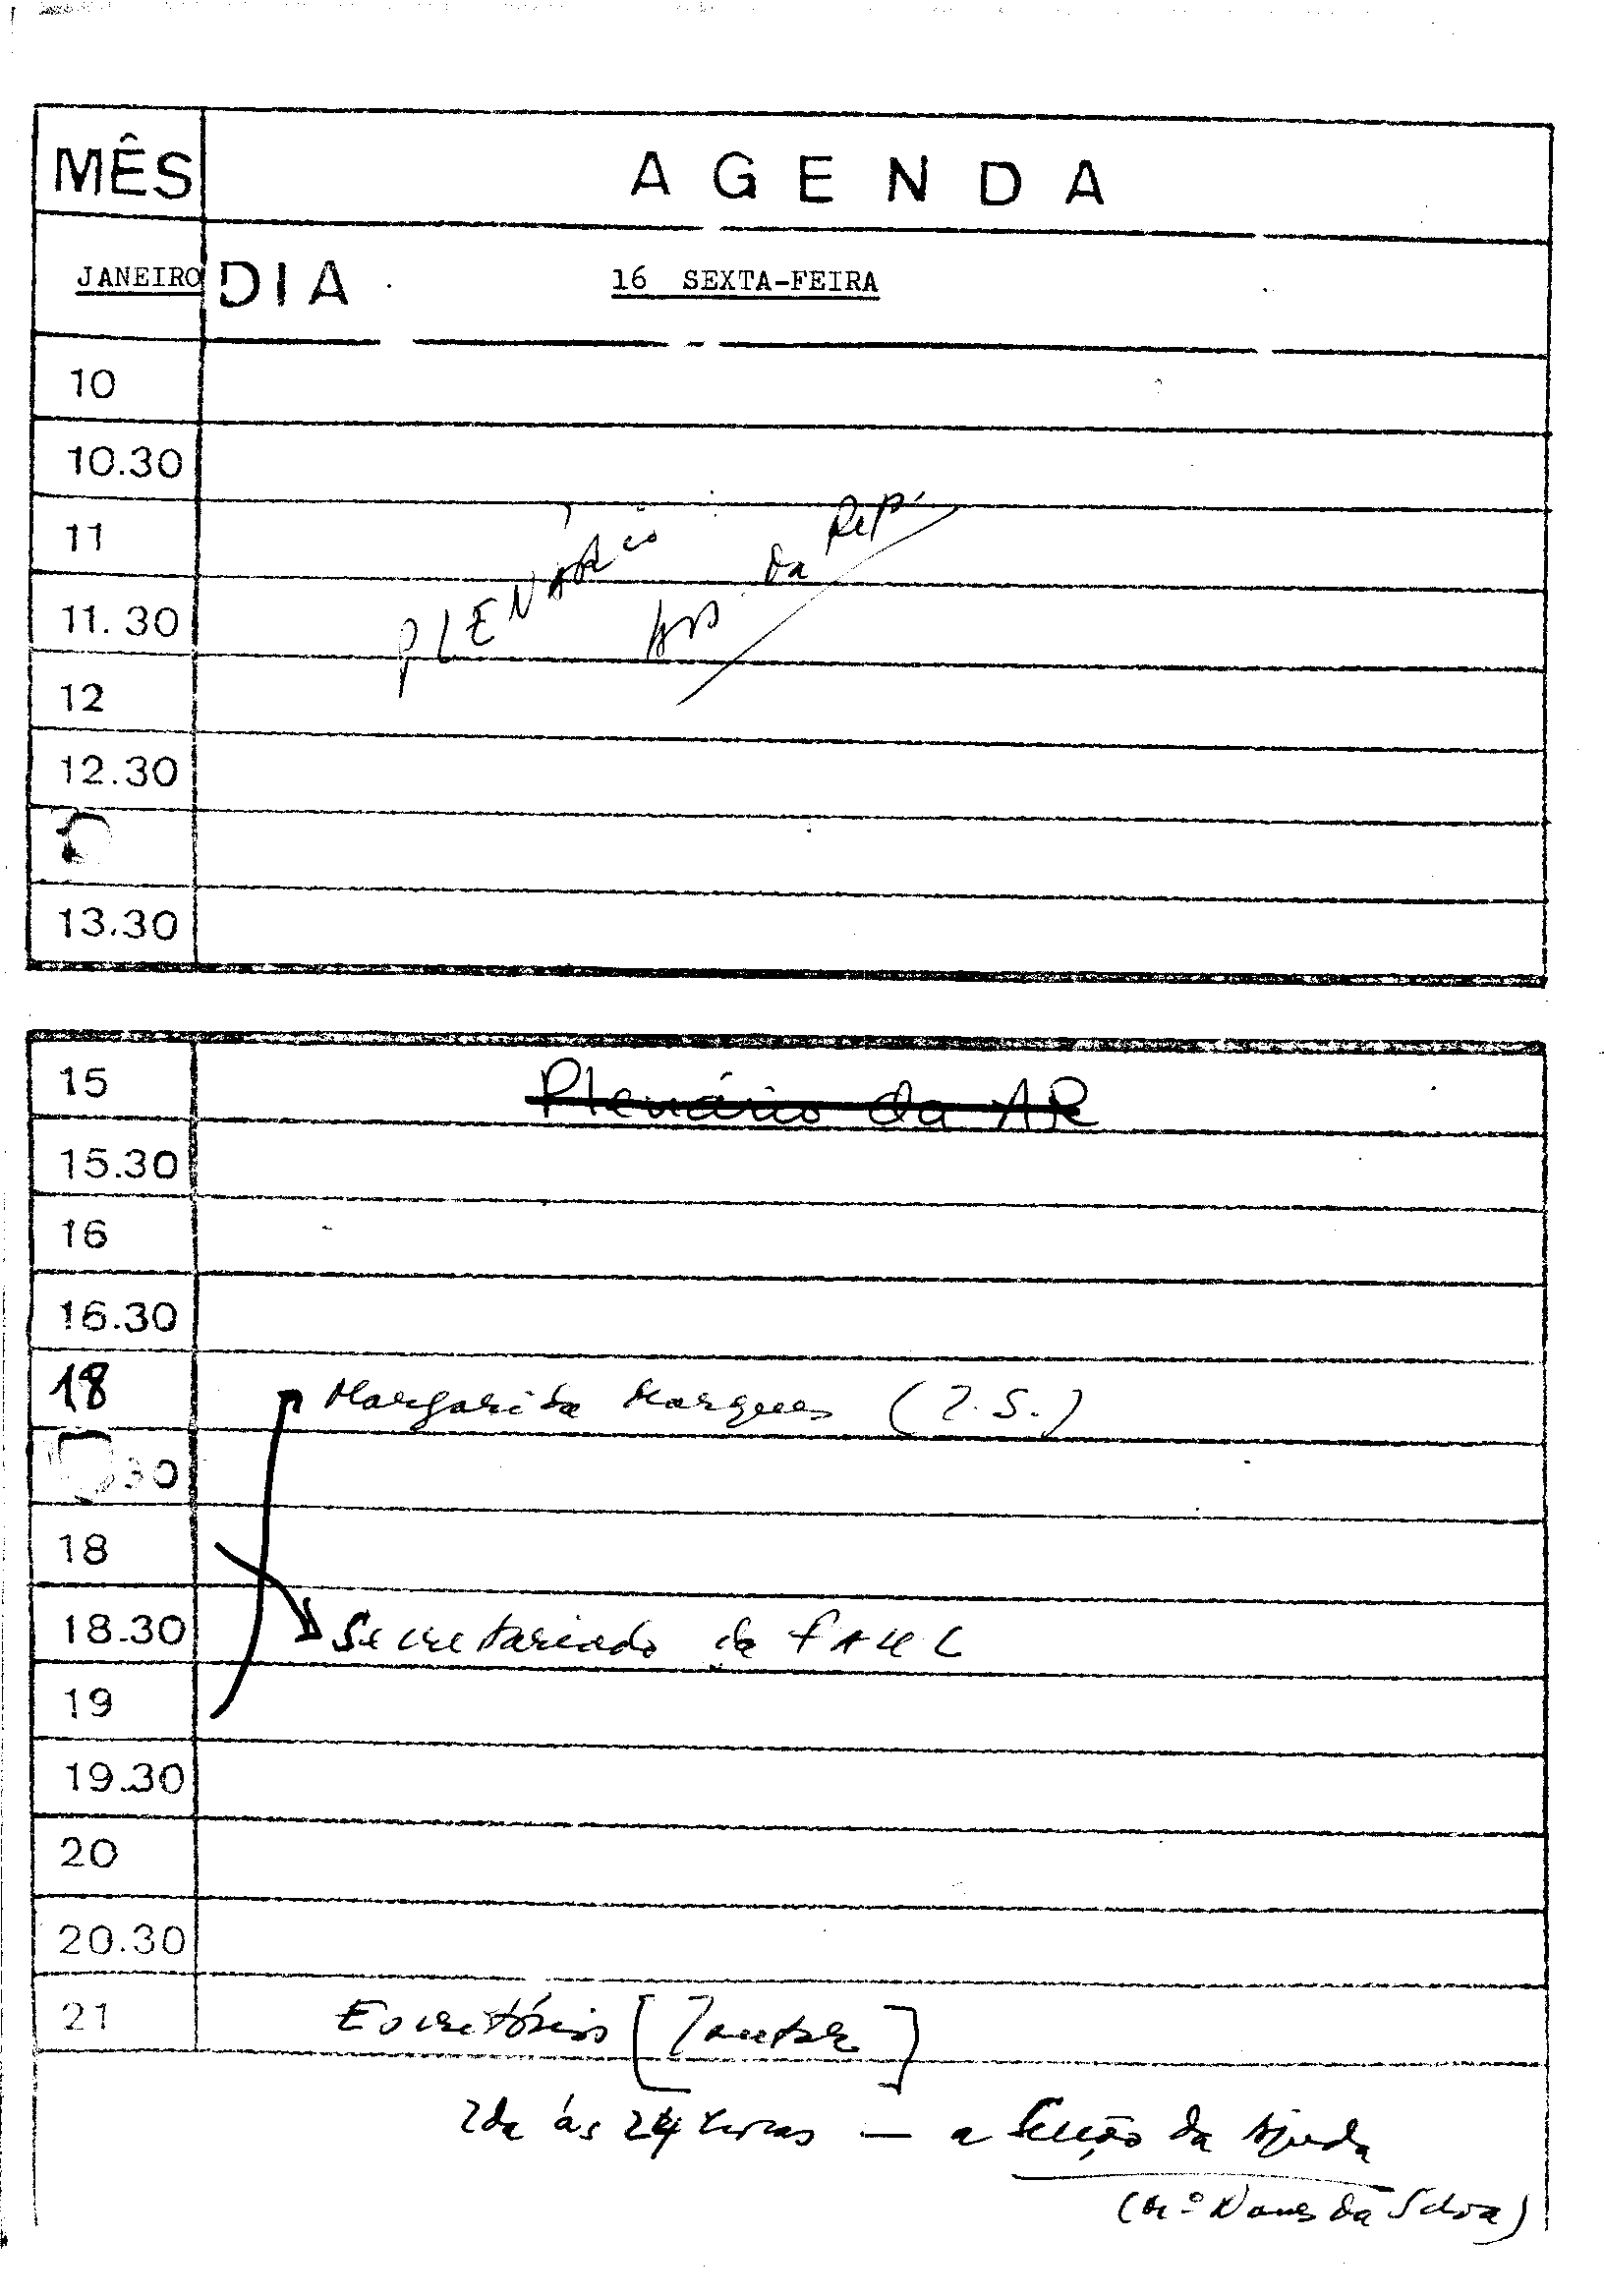 MÊS AGENDA
JANEIRO DIA 16 SEXTA-FEIRA
10
10.30
11
PLENÁRIO da Rep
11.30
12
12.30
13.30
15 Plenário da AR
15.30
16
16.30
18 Margarida Marques
30
18
18.30 Secretariado da FAUL
19
19.30
20
20.30
21 Escritório [Jantar]
Ida às 24 horas — a Secção da Ajuda
Nunes da Silva)